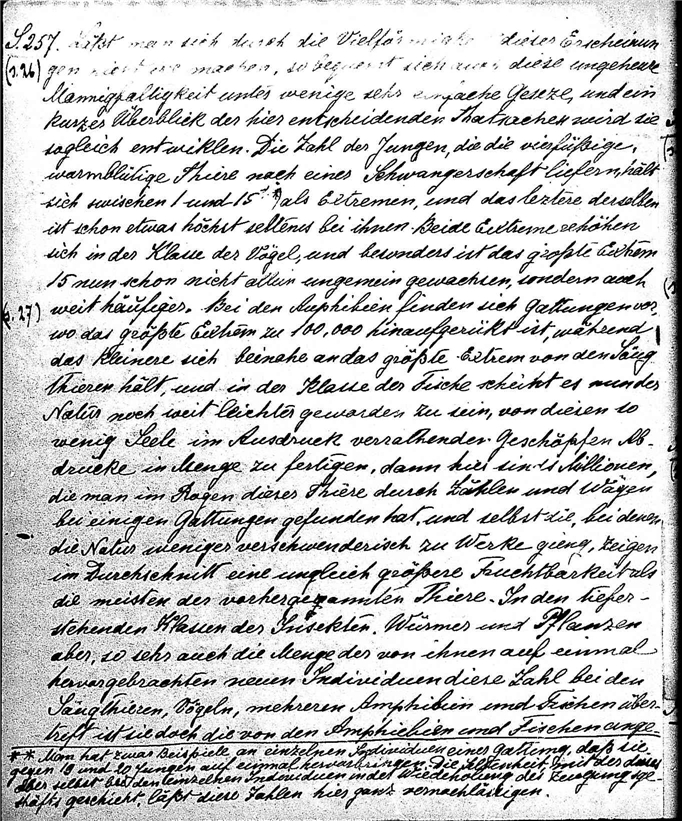 S. 257. Läßt man sich durch die Vielförmigkeit dieser Erscheinun
(s. 26) gen nicht irre machen, so bequemt sich auch diese ungeheure
Mannigfaltigkeit unter wenige sehr einfache Geseze, und ein
kurzer Überblick der hier entscheidenden Thatsachen wird sie
sogleich entwiklen. Die Zahl der Jungen, die die vierfüßige,
warmblütige Thiere nach einer Schwangerschaft liefern, hält
sich zwischen 1 und 15 **) als Extremen, und das leztere derselben
ist schon etwas höchst seltenes bei ihnen. Beide Extreme erhöhen
sich in der Klasse der Vögel, und besonders ist das größte Extrem
15 nun schon nicht allein ungemein gewachsen, sondern auch
(s. 27) weit häufiger. Bei den Amphibien finden sich Gattungen vor,
wo das größte Extrem zu 100,000 hinaufgerükt ist, während
das kleinere sich beinahe an das größte Extrem von den Säug
thieren hält, und in der Klasse der Fische scheint es nun der
Natur noch weit leichter geworden zu sein, von diesen so
wenig Seele im Ausdruck verrathenden Geschöpfen Ab-
drucke in Menge zu fertigen, dann hier sind es Millionen,
die man im Rogen dieser Thiere durch Zählen und Wägen
bei einigen Gattungen gefunden hat, und selbst die, bei denen
die Natur weniger verschwenderisch zu Werke gieng, zeigen
im Durchschnitt eine ungleich größere Fruchtbarkeit als
die meisten der vorhergenannten Thiere. In den tiefer-
stehenden Klassen der Insekten, Würmer und Pflanzen
aber, so sehr auch die Menge der von ihnen auf einmal
hervorgebrachten neuen Individuen diese Zahl bei den
Säugthieren, Vögeln, mehreren Amphibien und Fischen über-
trift ist sie doch die von den Amphiebien und Fischen ange-
** Man hat zwar Beispiele an einzelnen Individuen einer Gattung, daß sie
gegen 18 und 20 Jungen auf einmal hervorbringen. Die Seltenheit mit der dieses
aber selbst bei den einzelnen Individuen in der Wiederholung des Zeugungsge-
schäfts geschieht, läßt diese Zahlen hier ganz vernachlässigen.